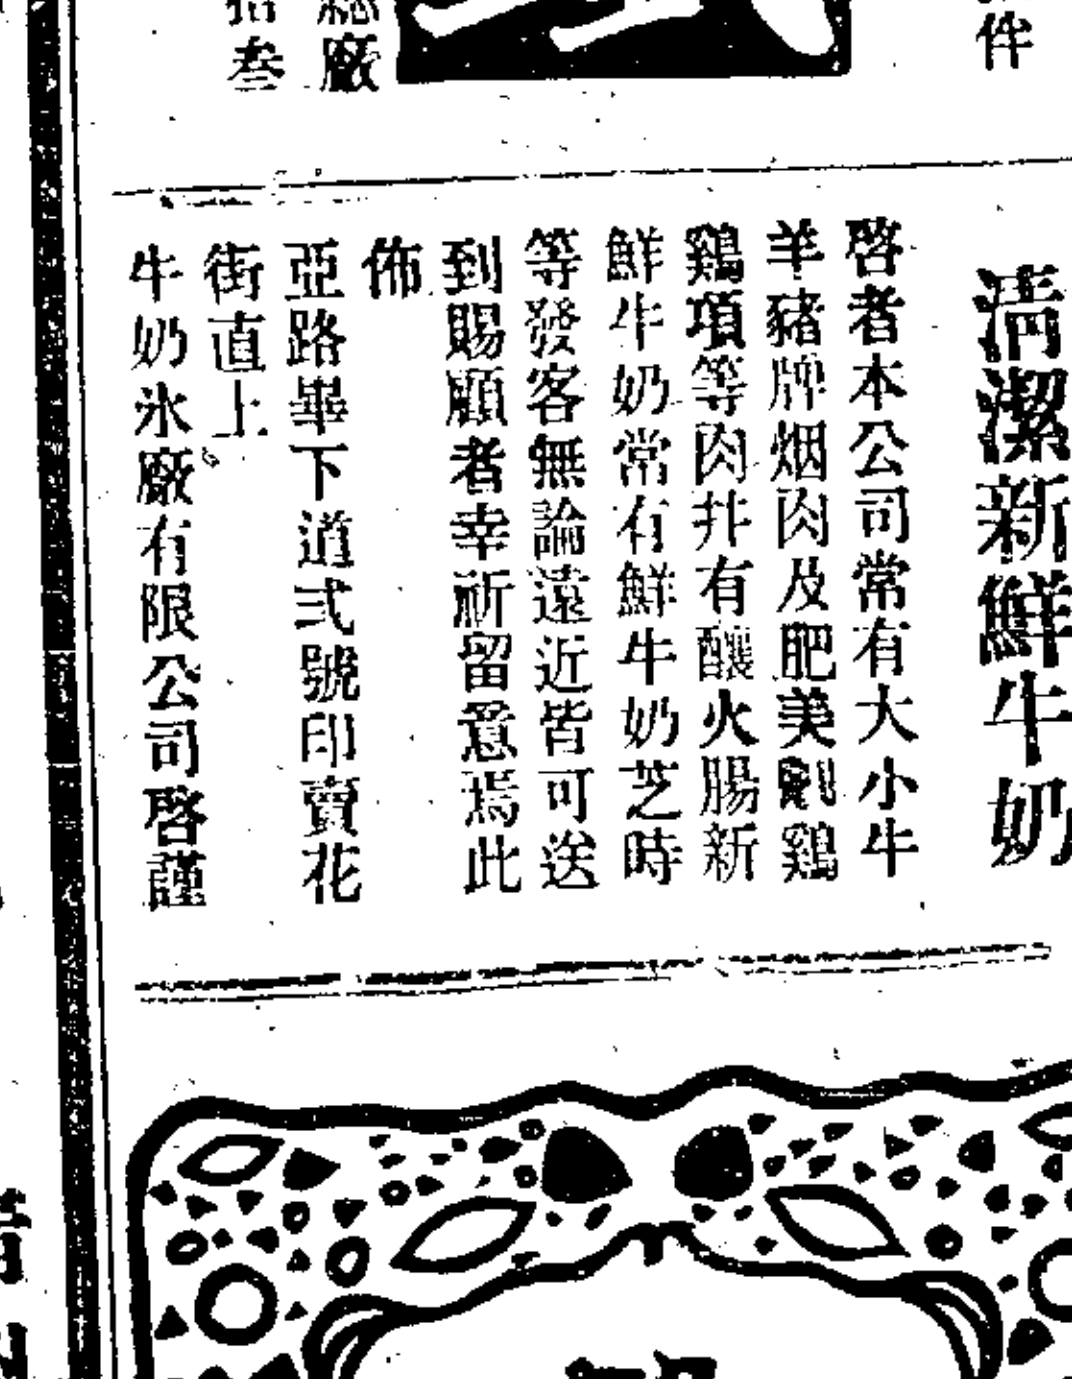 伴
總廠
拾叁
清潔新鮮牛奶
啓者本公司常有大小牛
羊豬牌烟肉及肥美劏鷄
鷄項等肉幷有釀火腸新
鮮牛奶常有鮮牛奶芝時
等發客無論遠近皆可送
到賜顧者幸祈留意焉此
佈
亞路畢下道弍號印賣花
街直上
牛奶氷廠有限公司啓謹